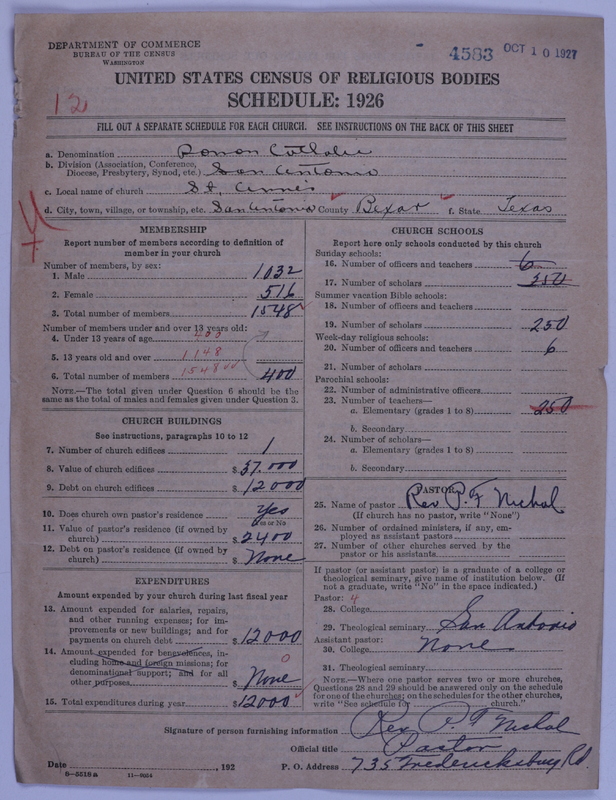 DEPARTMENT OF COMMERCE
BUREAU OF THE CENSUS
WASHINGTON
4583 OCT 10 1927
UNITED STATES CENSUS OF RELIGIOUS BODIES
SCHEDULE: 1926
12
FILL OUT A SEPARATE SCHEDULE FOR EACH CHURCH. SEE INSTRUCTIONS ON THE BACK OF THIS SHEET
a. Denomination Roman Catholic
b. Division (Association, Conference,
Diocese, Presbytery, Synod, etc.) San Antonio
c. Local name of church St, Anne's
d. City, town, village, or township, etc. San Antonio County Bexar f. State Texas
MEMBERSHIP
Report number of members according to definition of
member in your church
Number of members, by sex:
1. Male 1032
2. Female 516
3. Total number of members 1548
Number of members under and over 13 years old:
4. Under 13 years of age 400
5. 13 years old and over 1148
6. Total number of members 1548 400
NOTE.—The total given under Question 6 should be
same as the total of males and females given under Question 3.
CHURCH BUILDINGS
See instructions, paragraphs 10 to 12
7. Number of church edifices 1
8. Value of church edifices $ 37.000
9. Debt on church edifices $ 12000
10. Does church own pastor's residence Yes
Yes or No
11. Value of pastor's residence (if owned by
church) $ 2400
12. Debt on pastor's residence (if owned by
church) $ None
EXPENDITURES
Amount expended by your church during last fiscal year
13. Amount expended for salaries, repairs,
and other running expenses; for im-
provements or new buildings; and for
payments on church debt $ 12000
14. Amount expended for benevolences, in-
cluding home and foreign missions; for
denominational support; and for all
other purposes $ None 0
15. Total expenditures during year $ 12000
CHURCH SCHOOLS
Report here only schools conducted by this church
Sunday schools:
16. Number of officers and teachers 6
17. Number of scholars 350
Summer vacation Bible schools:
18. Number of officers and teachers
19. Number of scholars 250
Week-day religious schools:
20. Number of officers and teachers 6
21. Number of scholars
Parochial schools:
22. Number of administrative officers
23. Number of teachers—
a. Elementary (grades 1 to 8) 250
b. Secondary
24. Number of scholars—
a. Elementary (grades 1 to 8)
b. Secondary
PASTOR
25. Name of pastor Rev P. F Nichol
(If church has no pastor, write "None")
26. Number of ordained ministers, if any, em-
ployed as assistant pastors
27. Number of other churches served by the
pastor or his assistants
If pastor (or assistant pastor) is a graduate of a college or
theological seminary, give name of institution below. (If
not a graduate, write "No" in the space indicated.)
Pastor: 4
28. College
29. Theological seminary San Antonio
Assistant pastor:
30. College None
31. Theological seminary
NOTE.—Where one pastor serves two or more churches,
Questions 28 and 29 should be answered only on the schedule
for one of the churches; on the schedules for the other churches,
write "See schedule for church."
Signature of person furnishing information Rev P. F Nichol
Official title Pastor
Date , 192 P. O. Address 735 Fredericksburg Rd.
8-5518 a 11-9054